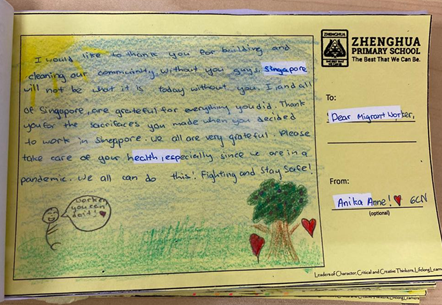 I would like to thank you for building and
cleaning our community. Without you guys, Singapore
will not be what it is today without you. I, and all
of Singapore, are grateful for everything you did. Thank
you for the sacrifices you made when you decided
to work in Singapore. We all are very grateful. Please
take care of your health, especially since we are in a
pandemic. We all can do this! Fighting and Stay Safe!
worker
you can
do it!
ZHENGHUA
PRIMARY SCHOOL
The Best That We Can Be.
To:
Dear Migrant Worker,
From:
Anika Anne! 6CN
(optional)
Leaders of Character, Critical and Creative Thinkers, Lifelong Learners